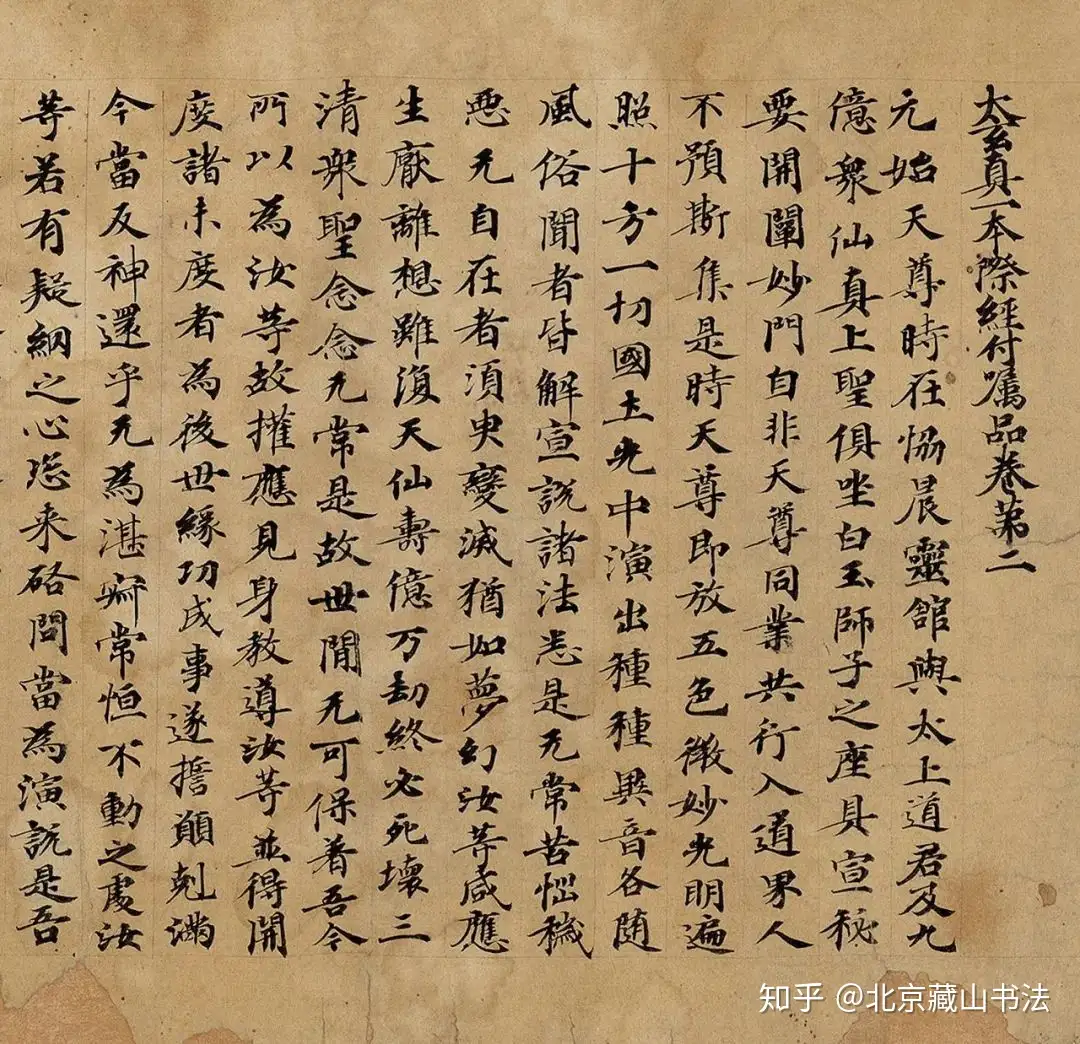 太玄真一本際經付囑品卷第二
元始天尊時在協晨靈館與太上道君及九
億衆仙真上聖俱坐白玉師子之座具宣秘
要開闡妙門自非天尊同業共行入道界人
不預斯集是時天尊即放五色微妙光明遍
照十方一切國土光中演出種種異音各随
風俗聞者皆解宣説諸法悉是无常苦惱穢
惡无自在者須臾變滅猶如夢幻汝等咸應
生厭離想雖復天仙壽億万劫終必死壞三
清衆聖念念无常是故世間无可保著吾今
所以為汝等故權應見身教導汝等並得開
度諸未度者為後世緣功成事遂誓願剋滿
今當反神還乎无為湛寂常恒不動之處汝
等若有疑網之心恣来啓問當為演説是吾
知乎 @北京藏山书法